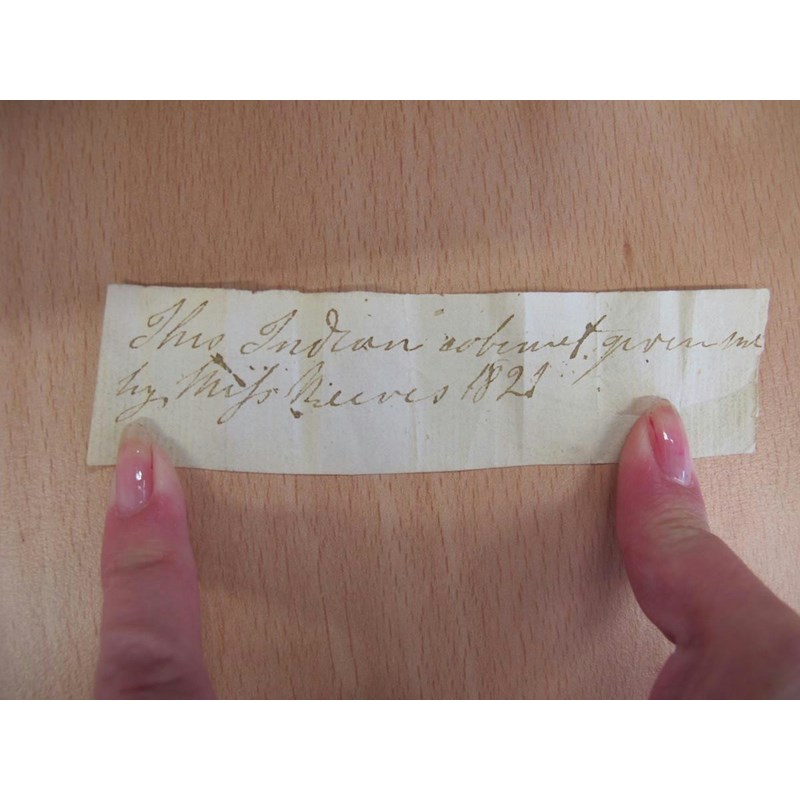 This Indian cabinet given me
by Miss Reeves 1821